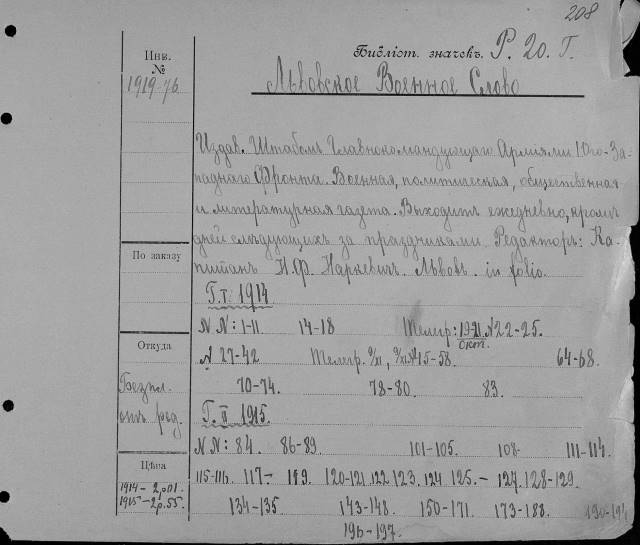 208
Инв.
№
1919 76
Библіот. значекъ. Р. 20. Г.
Львовское Военное Слово
Издав. Штабомъ Главнокомандующаго Арміями Юго-За-
паднаго Фронта. Военная, политическая, общественная
и литературная газета. Выходитъ ежедневно, кромѣ
дней слѣдующихъ за праздниками Редакторъ: Ка-
питанъ Н. Ф. Наркевич. Львовъ. in folio.
По заказу
Г. I. 1914
N N: 1-11 14-18 Телегр: 19-21 N 22-25.
окт.
Откуда
N 27-42 Телегр. 45-58. 64-68.
Безпл.
отъ ред.
70-74. 78-80. 83.
Г. II 1915.
N N: 84. 86-89. 101-105. 108- 111-114.
Цѣна
1914- 2р01.
1915-2р.55.
115-116. 117- 119. 120-121. 122 123. 124 125.- 127. 128-129.
134-135 143-148. 150-171. 173-188. 190-194
196-197.